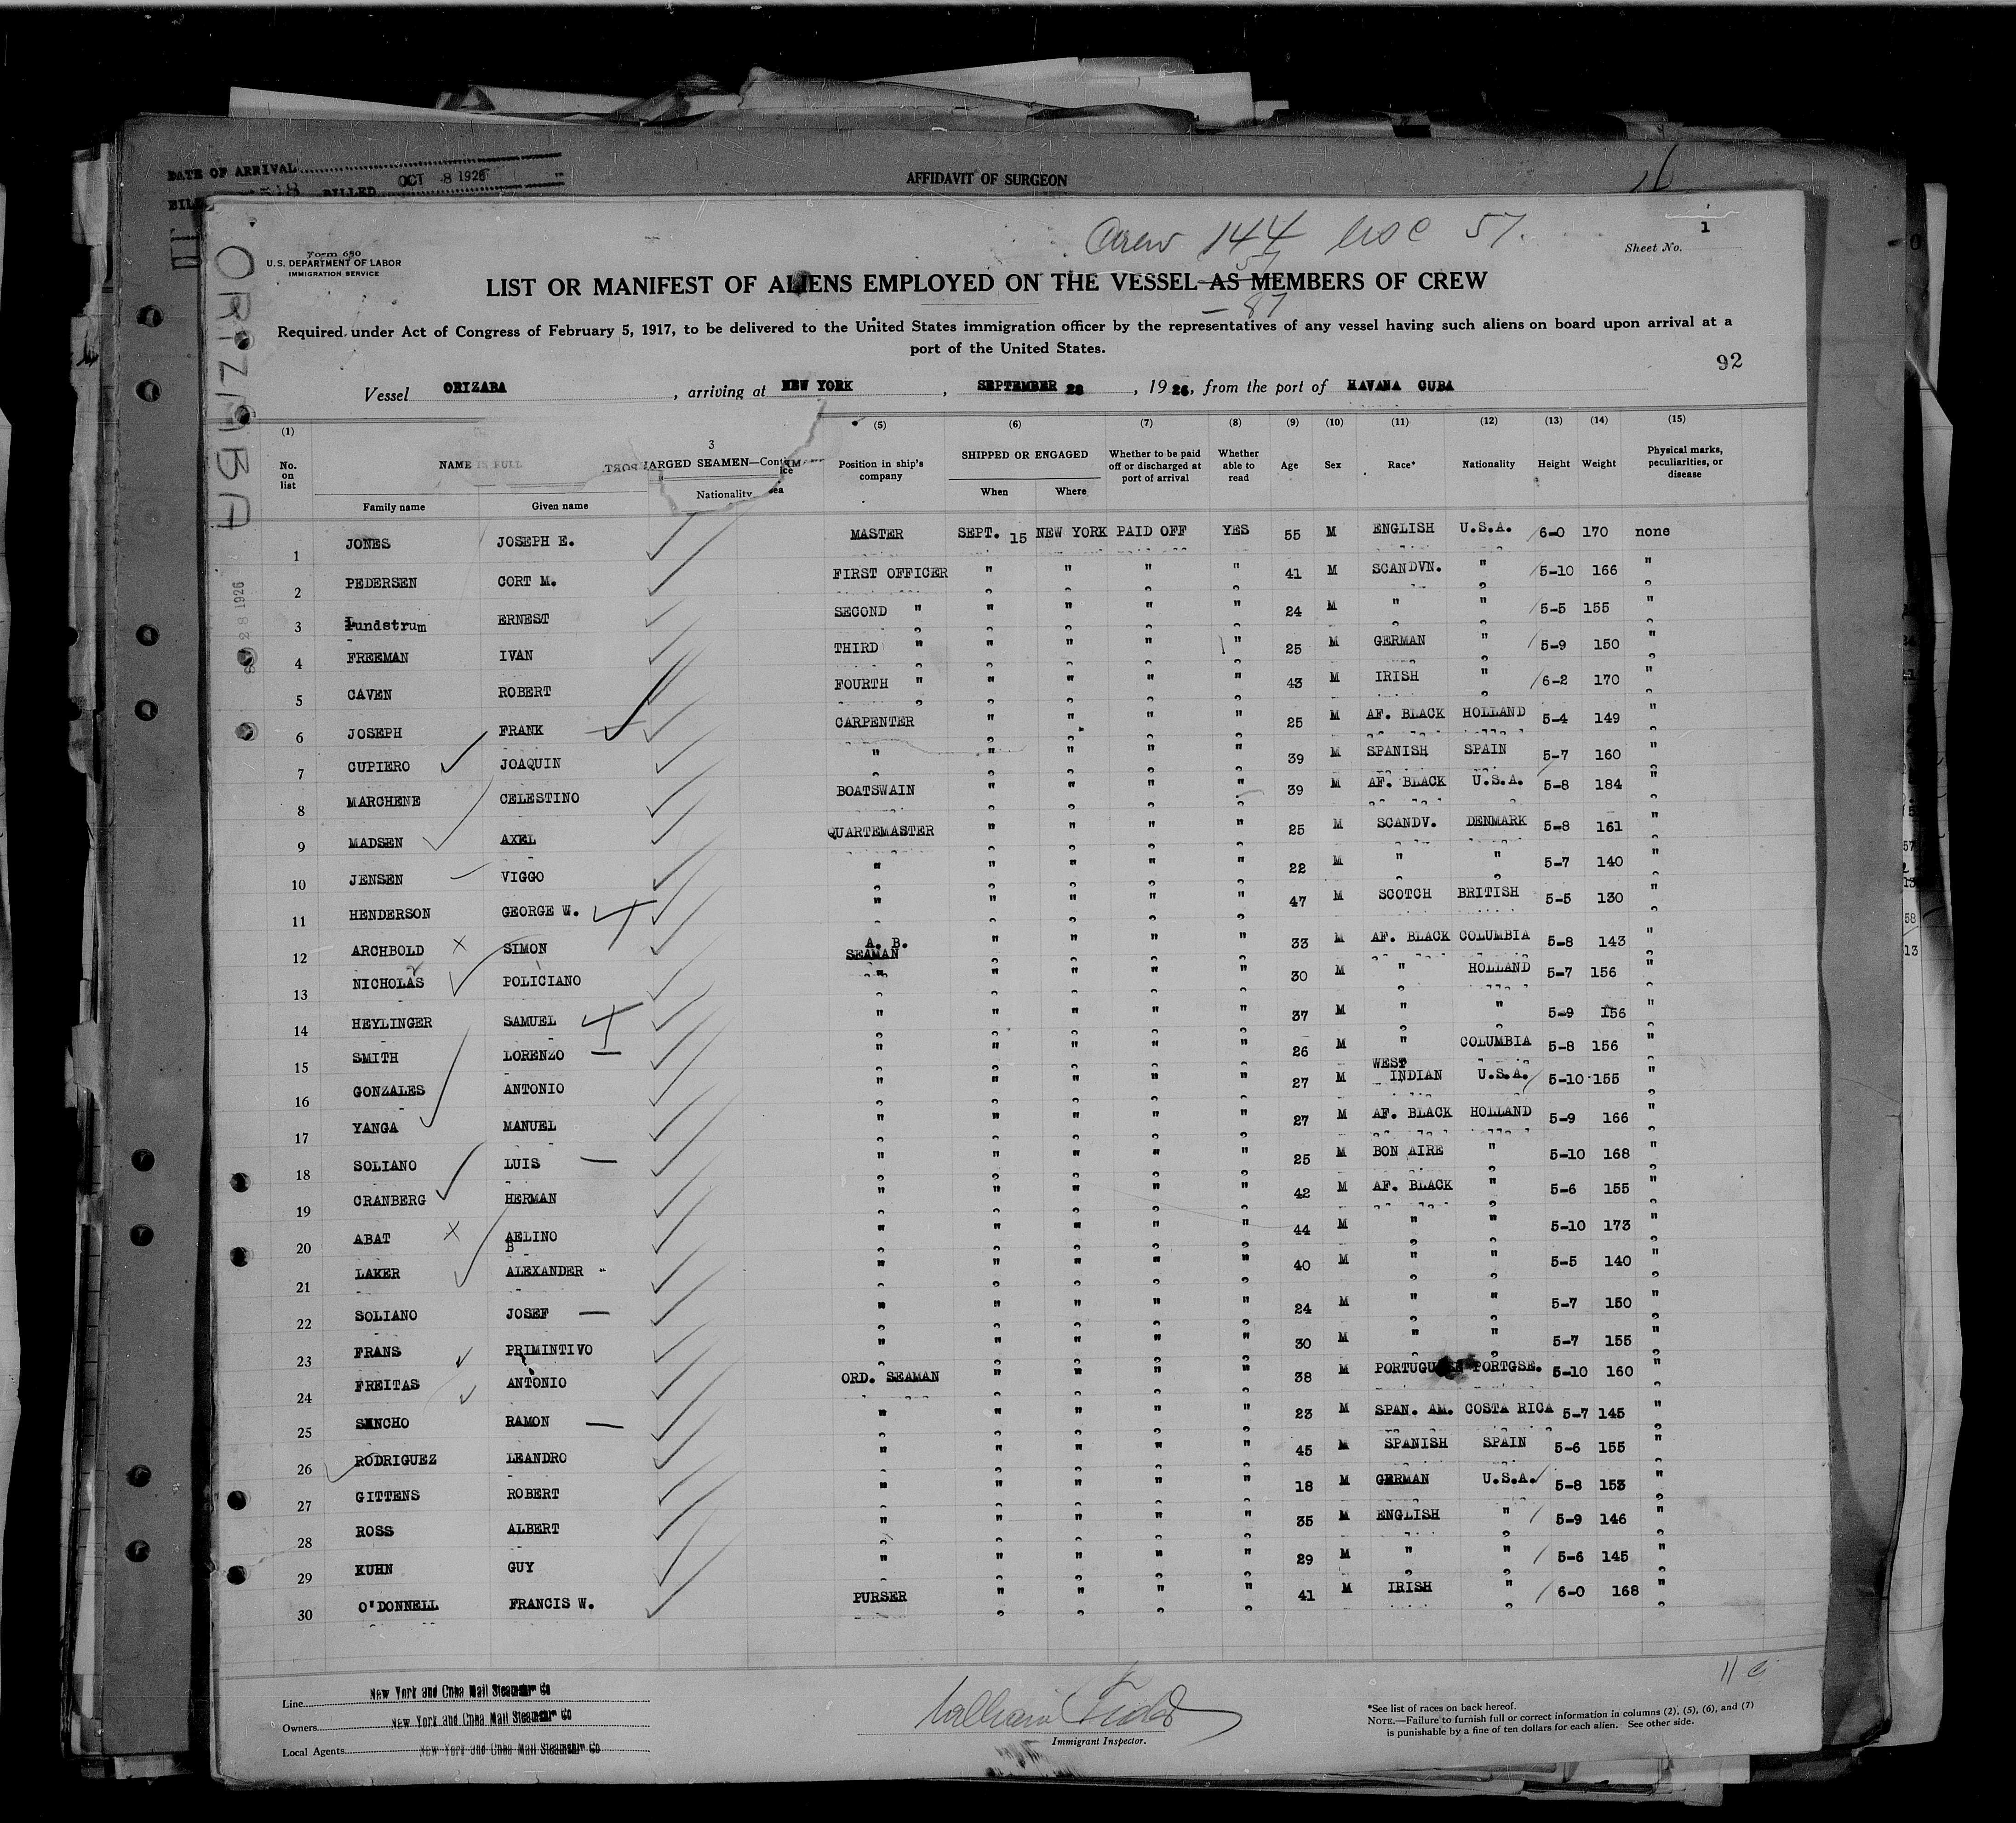 DATE OF ARRIVAL
OCT 8 1926
BILLED
AFFIDAVIT OF SURGEON
Crew 144 57.
57
87
Sheet No. 1
Form 680
U.S. DEPARTMENT OF LABOR
IMMIGRATION SERVICE
ORIZABA
LIST OR MANIFEST OF ALIENS EMPLOYED ON THE VESSEL AS MEMBERS OF CREW
Required under Act of Congress of February 5, 1917, to be delivered to the United States immigration officer by the representatives of any vessel having such aliens on board upon arrival at a
port of the United States.
92
Vessel ORIZABA, arriving at NEW YORK, SEPTEMBER 28, 1926, from the port of HAVANA CUBA
(1) 3 (5) (6) (7) (8) (9) (10) (11) (12) (13) (14) (15)
No. on list NAME IN FULL ARGED SEAMEN—Cont Position in ship's company SHIPPED OR ENGAGED Whether to be paid off or discharged at port of arrival Whether able to read Age Sex Race* Nationality Height Weight Physical marks, peculiarities, or disease
Family name Given name Nationality When Where
1 JONES JOSEPH E. MASTER SEPT. 15 NEW YORK PAID OFF YES 55 M ENGLISH U.S.A. 6-0 170 none
2 PEDERSEN CORT M. FIRST OFFICER " " " " 41 M SCANDVN. " 5-10 166 "
3 Lundstrum ERNEST SECOND " " " " " 24 M " " 5-5 155 "
4 FREEMAN IVAN THIRD " " " " " 25 M GERMAN " 5-9 150 "
5 CAVEN ROBERT FOURTH " " " " " 43 M IRISH " 6-2 170 "
6 JOSEPH FRANK CARPENTER " " " " 25 M AF. BLACK HOLLAND 5-4 149 "
7 CUPIERO JOAQUIN " " " " " 39 M SPANISH SPAIN 5-7 160 "
8 MARCHENE CELESTINO BOATSWAIN " " " " 39 M AF. BLACK U.S.A. 5-8 184 "
9 MADSEN AXEL QUARTEMASTER " " " " 25 M SCANDV. DENMARK 5-8 161 "
10 JENSEN VIGGO " " " " " 22 M " " 5-7 140 "
11 HENDERSON GEORGE W. " " " " " 47 M SCOTCH BRITISH 5-5 130 "
12 ARCHBOLD SIMON A. B. SEAMAN " " " " 33 M AF. BLACK COLUMBIA 5-8 143 "
13 NICHOLAS POLICIANO " " " " " 30 M " HOLLAND 5-7 156 "
14 HEYLINGER SAMUEL " " " " " 37 M " " 5-9 156 "
15 SMITH LORENZO " " " " " 26 M " COLUMBIA 5-8 156 "
16 GONZALES ANTONIO " " " " " 27 M WEST INDIAN U.S.A. 5-10 155 "
17 YANGA MANUEL " " " " " 27 M AF. BLACK HOLLAND 5-9 166 "
18 SOLIANO LUIS " " " " " 25 M BON AIRE " 5-10 168 "
19 CRANBERG HERMAN " " " " " 42 M AF. BLACK " 5-6 155 "
20 ABAT AELINO B " " " " " 44 M " " 5-10 173 "
21 LAKER ALEXANDER " " " " " 40 M " " 5-5 140 "
22 SOLIANO JOSEF " " " " " 24 M " " 5-7 150 "
23 FRANS PRIMINTIVO " " " " " 30 M " " 5-7 155 "
24 FREITAS ANTONIO ORD. SEAMAN " " " " 38 M PORTUGUESE PORTGSE. 5-10 160 "
25 SANCHO RAMON " " " " " 23 M SPAN. AM. COSTA RICA 5-7 145 "
26 RODRIGUEZ LEANDRO " " " " " 45 M SPANISH SPAIN 5-6 155 "
27 GITTENS ROBERT " " " " " 18 M GERMAN U.S.A. 5-8 153 "
28 ROSS ALBERT " " " " " 35 M ENGLISH " 5-9 146 "
29 KUHN GUY " " " " " 29 M " " 5-6 145 "
30 O'DONNELL FRANCIS W. PURSER " " " " 41 M IRISH " 6-0 168 "
Line New York and Cuba Mail Steamship Co
Owners New York and Cuba Mail Steamship Co
Local Agents New York and Cuba Mail Steamship Co
William
Immigrant Inspector.
*See list of races on back hereof.
NOTE.—Failure to furnish full or correct information in columns (2), (5), (6), and (7)
is punishable by a fine of ten dollars for each alien. See other side.